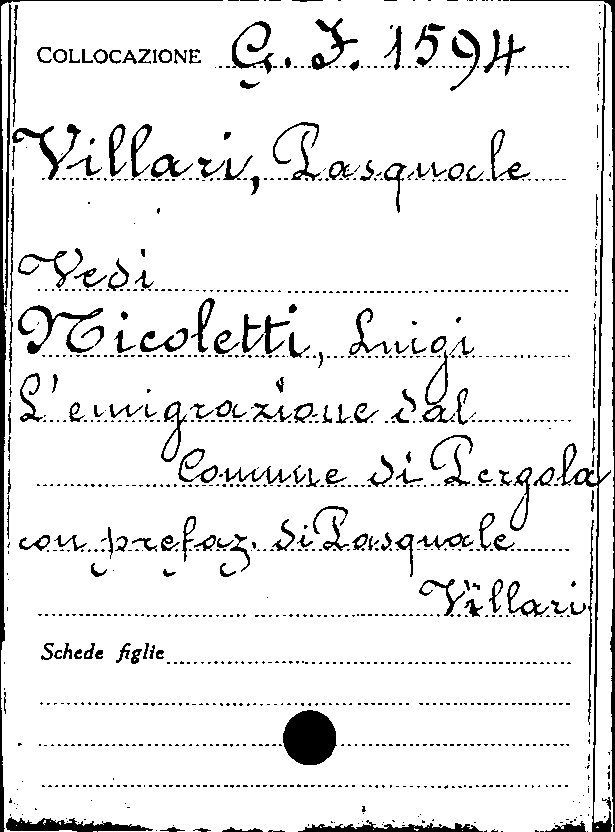 COLLOCAZIONE G. F. 1594
Villari, Pasquale
Vedi
Nicoletti, Luigi
L'emigrazione dal
Comune di Pergola
con prefaz. di Pasquale
Villari
Schede figlie